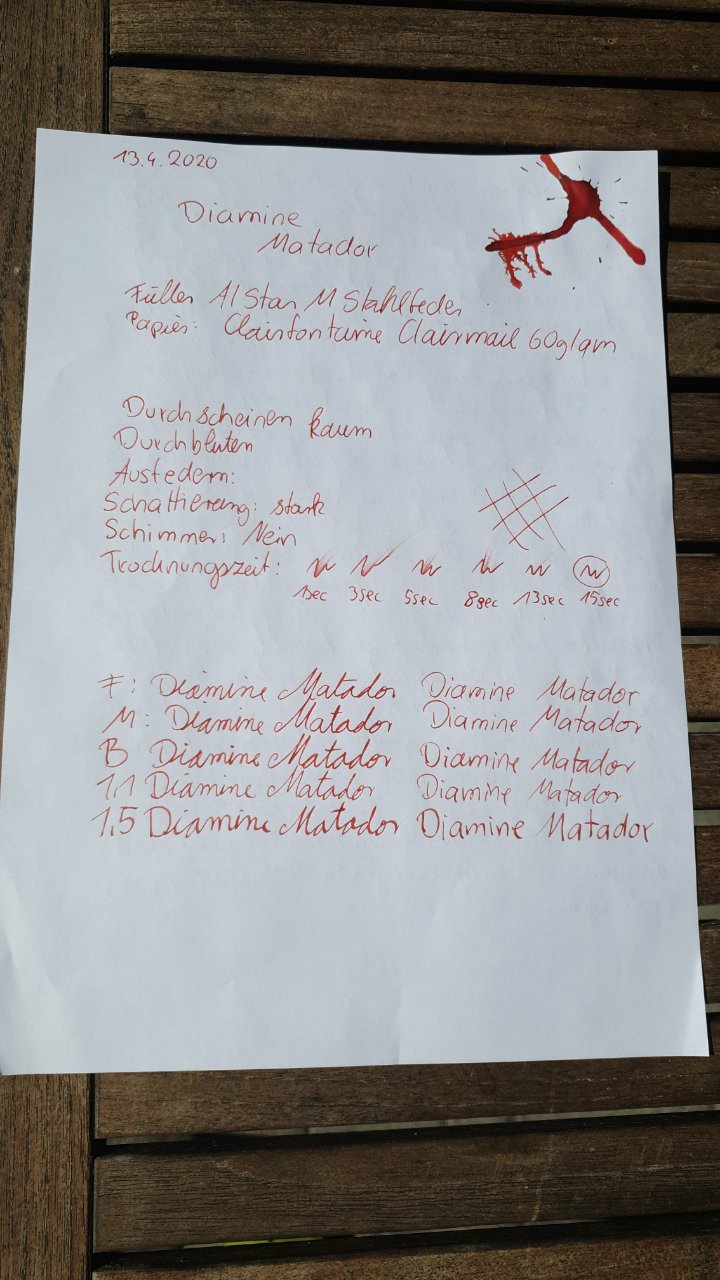 13.4.2020
Diamine
Matador
Füller Al Star M Stahlfeder
Papier: Clairfontaine Clairmail 60g/qm
Durchscheinen kaum
Durchbluten
Ausfedern:
Schattierung: stark
Schimmer: Nein
Trocknungszeit:
1sec 3sec 5sec 8sec 13sec 15sec
F: Diamine Matador Diamine Matador
M: Diamine Matador Diamine Matador
B Diamine Matador Diamine Matador
1,1 Diamine Matador Diamine Matador
1,5 Diamine Matador Diamine Matador